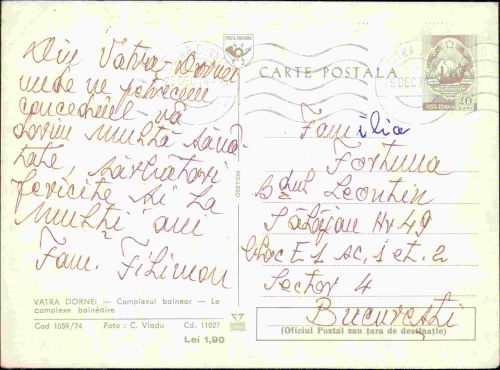 Din Vatra-Dornei
unde ne petrecem
concediul - vă
dorim multă sănă-
tate, sărbători
fericite și la
mulți ani
Fam. Filimon
VATRA DORNEI — Complexul balnear — Le
complexe balnéaire
Cod 1059/74 Foto : C. Vladu Cd. 11027
Lei 1,90
POȘTA ROMÂNĂ
OSETCM
CARTE POȘTALĂ
POSTA ROMANA
40
Familia
Fortuna
Bdul Leontin
Sălăjan Nr 49
Bloc E 1 sc, 1 et. 2
Sector 4
București
(Oficiul Postal sau țara de destinație)